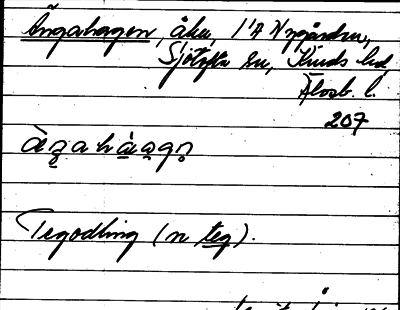 Ängahagen, åker, 1/4 Nygården,
Sjötofta sn, Kinds hd
Älvsb. l.
207
Tegodling (n teg).